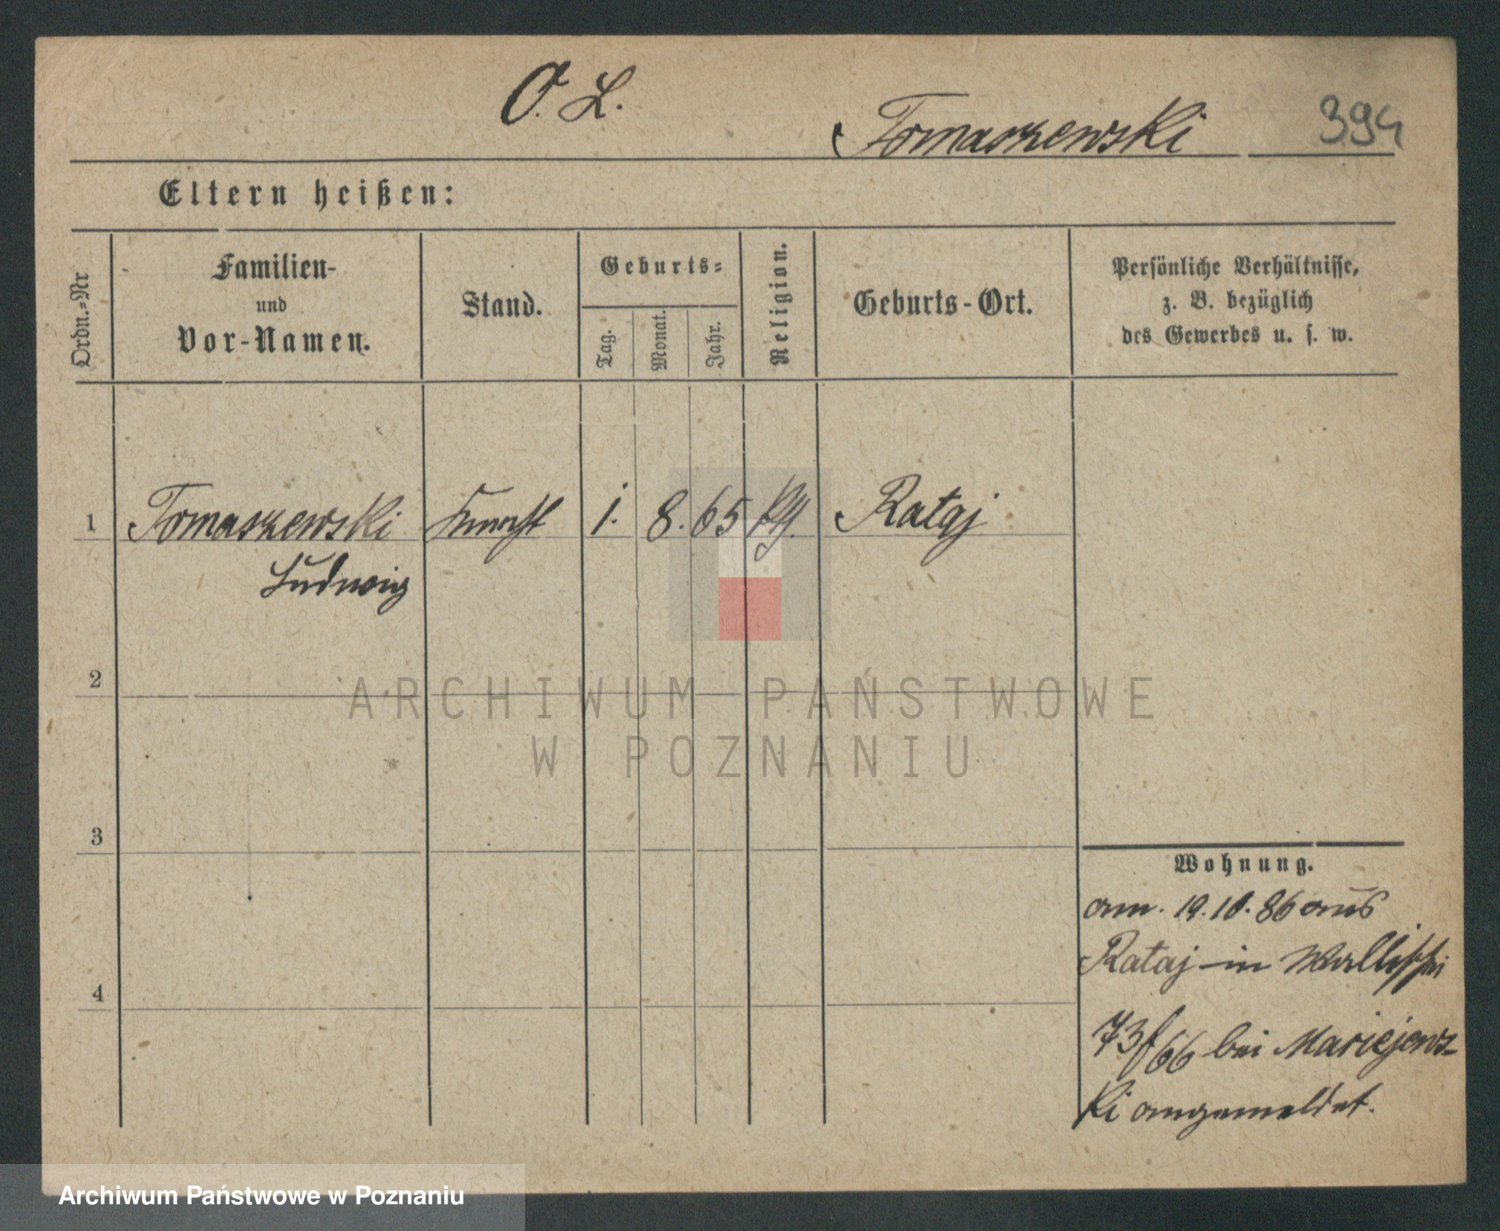 O. L.
Tomaszewski 394
Eltern heißen:
Ordn.=Nr
Familien-
und
Vor-Namen.
Stand.
Geburts=
Tag.
Monat.
Jahr.
Religion.
Geburts-Ort.
Persönliche Verhältnisse,
z. B. bezüglich
des Gewerbes u. s. w.
1 Tomaszewski 1. 8. 65 Rataj
Ludwig
2
ARCHIWUM PAŃSTWOWE
W POZNANIU
3
Wohnung.
am. 19. 10. 86 aus
Rataj in Wallischei
4
73/66 bei Mariejews-
ki angemeldet.
Archiwum Państwowe w Poznaniu